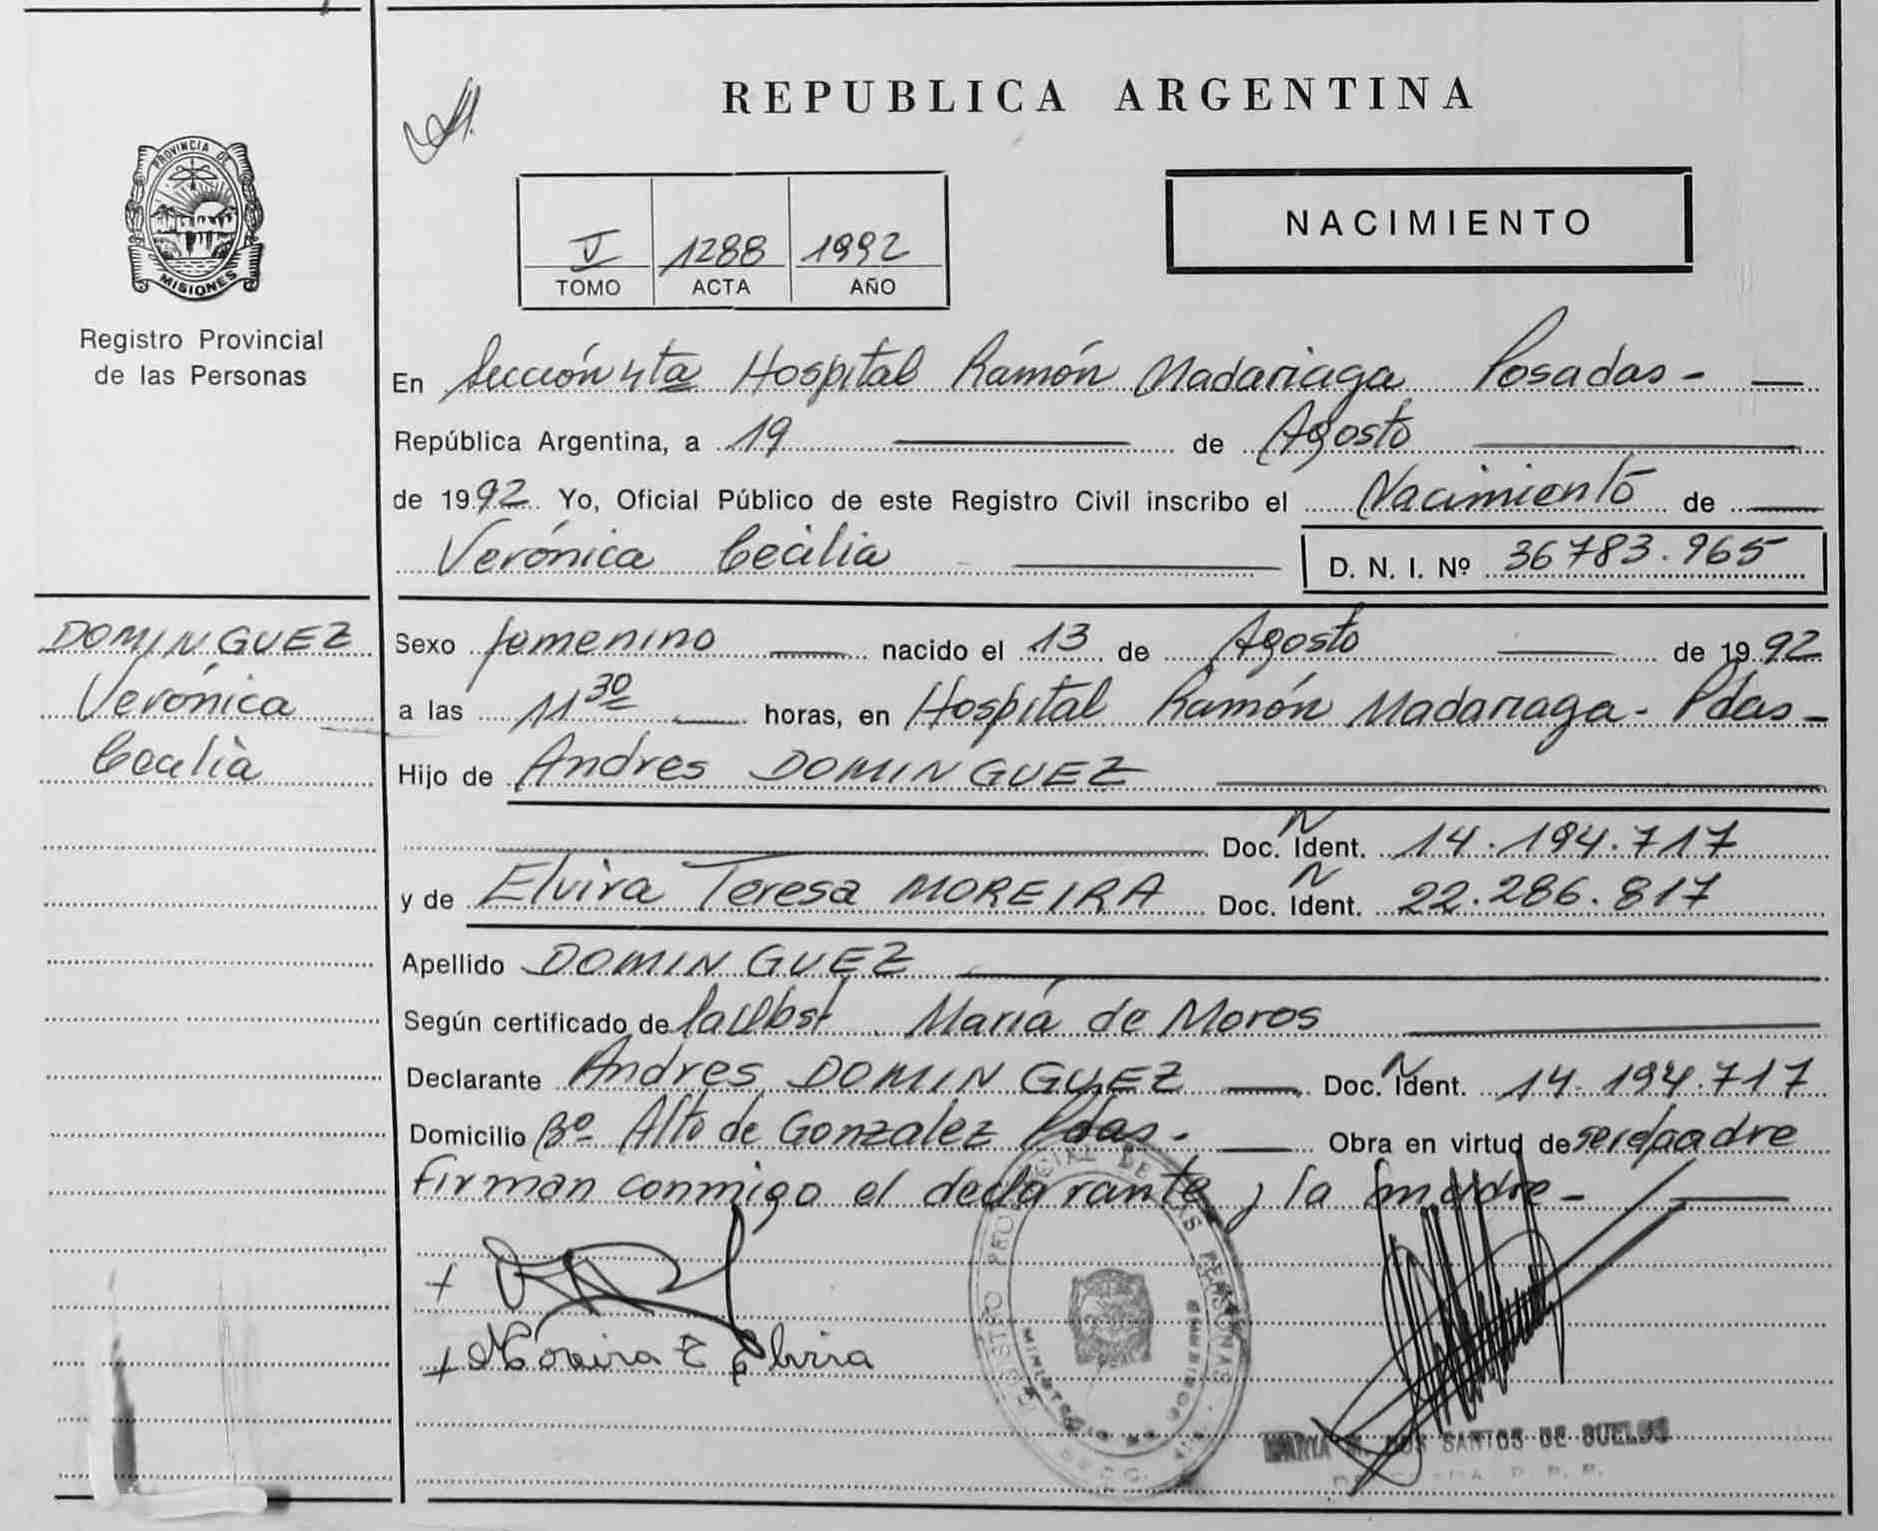 REPUBLICA ARGENTINA
PROVINCIA DE
MISIONES
Registro Provincial
de las Personas
V 1288 1992
TOMO ACTA AÑO
NACIMIENTO
En Sección 4ta Hospital Ramón Madariaga Posadas -
República Argentina, a 19 de Agosto
de 1992 Yo, Oficial Público de este Registro Civil inscribo el Nacimiento de
Verónica Cecilia D. N. I. Nº 36783.965
DOMINGUEZ
Verónica
Cecilia
Sexo femenino nacido el 13 de Agosto de 1992
a las 11 30 horas, en Hospital Ramón Madariaga - Pdas -
Hijo de Andres DOMINGUEZ
Doc. N Ident. 14.194.717
y de Elvira Teresa MOREIRA Doc. N Ident. 22.286.817
Apellido DOMINGUEZ
Según certificado de la Obst. María de Moros
Declarante Andres DOMINGUEZ Doc. N Ident. 14.194.717
Domicilio Bº Alto de Gonzalez Pdas - Obra en virtud de ser padre
Firman conmigo el declarante y la madre -
Moreira T Elvira
MARIA DOS SANTOS DE BUELOS